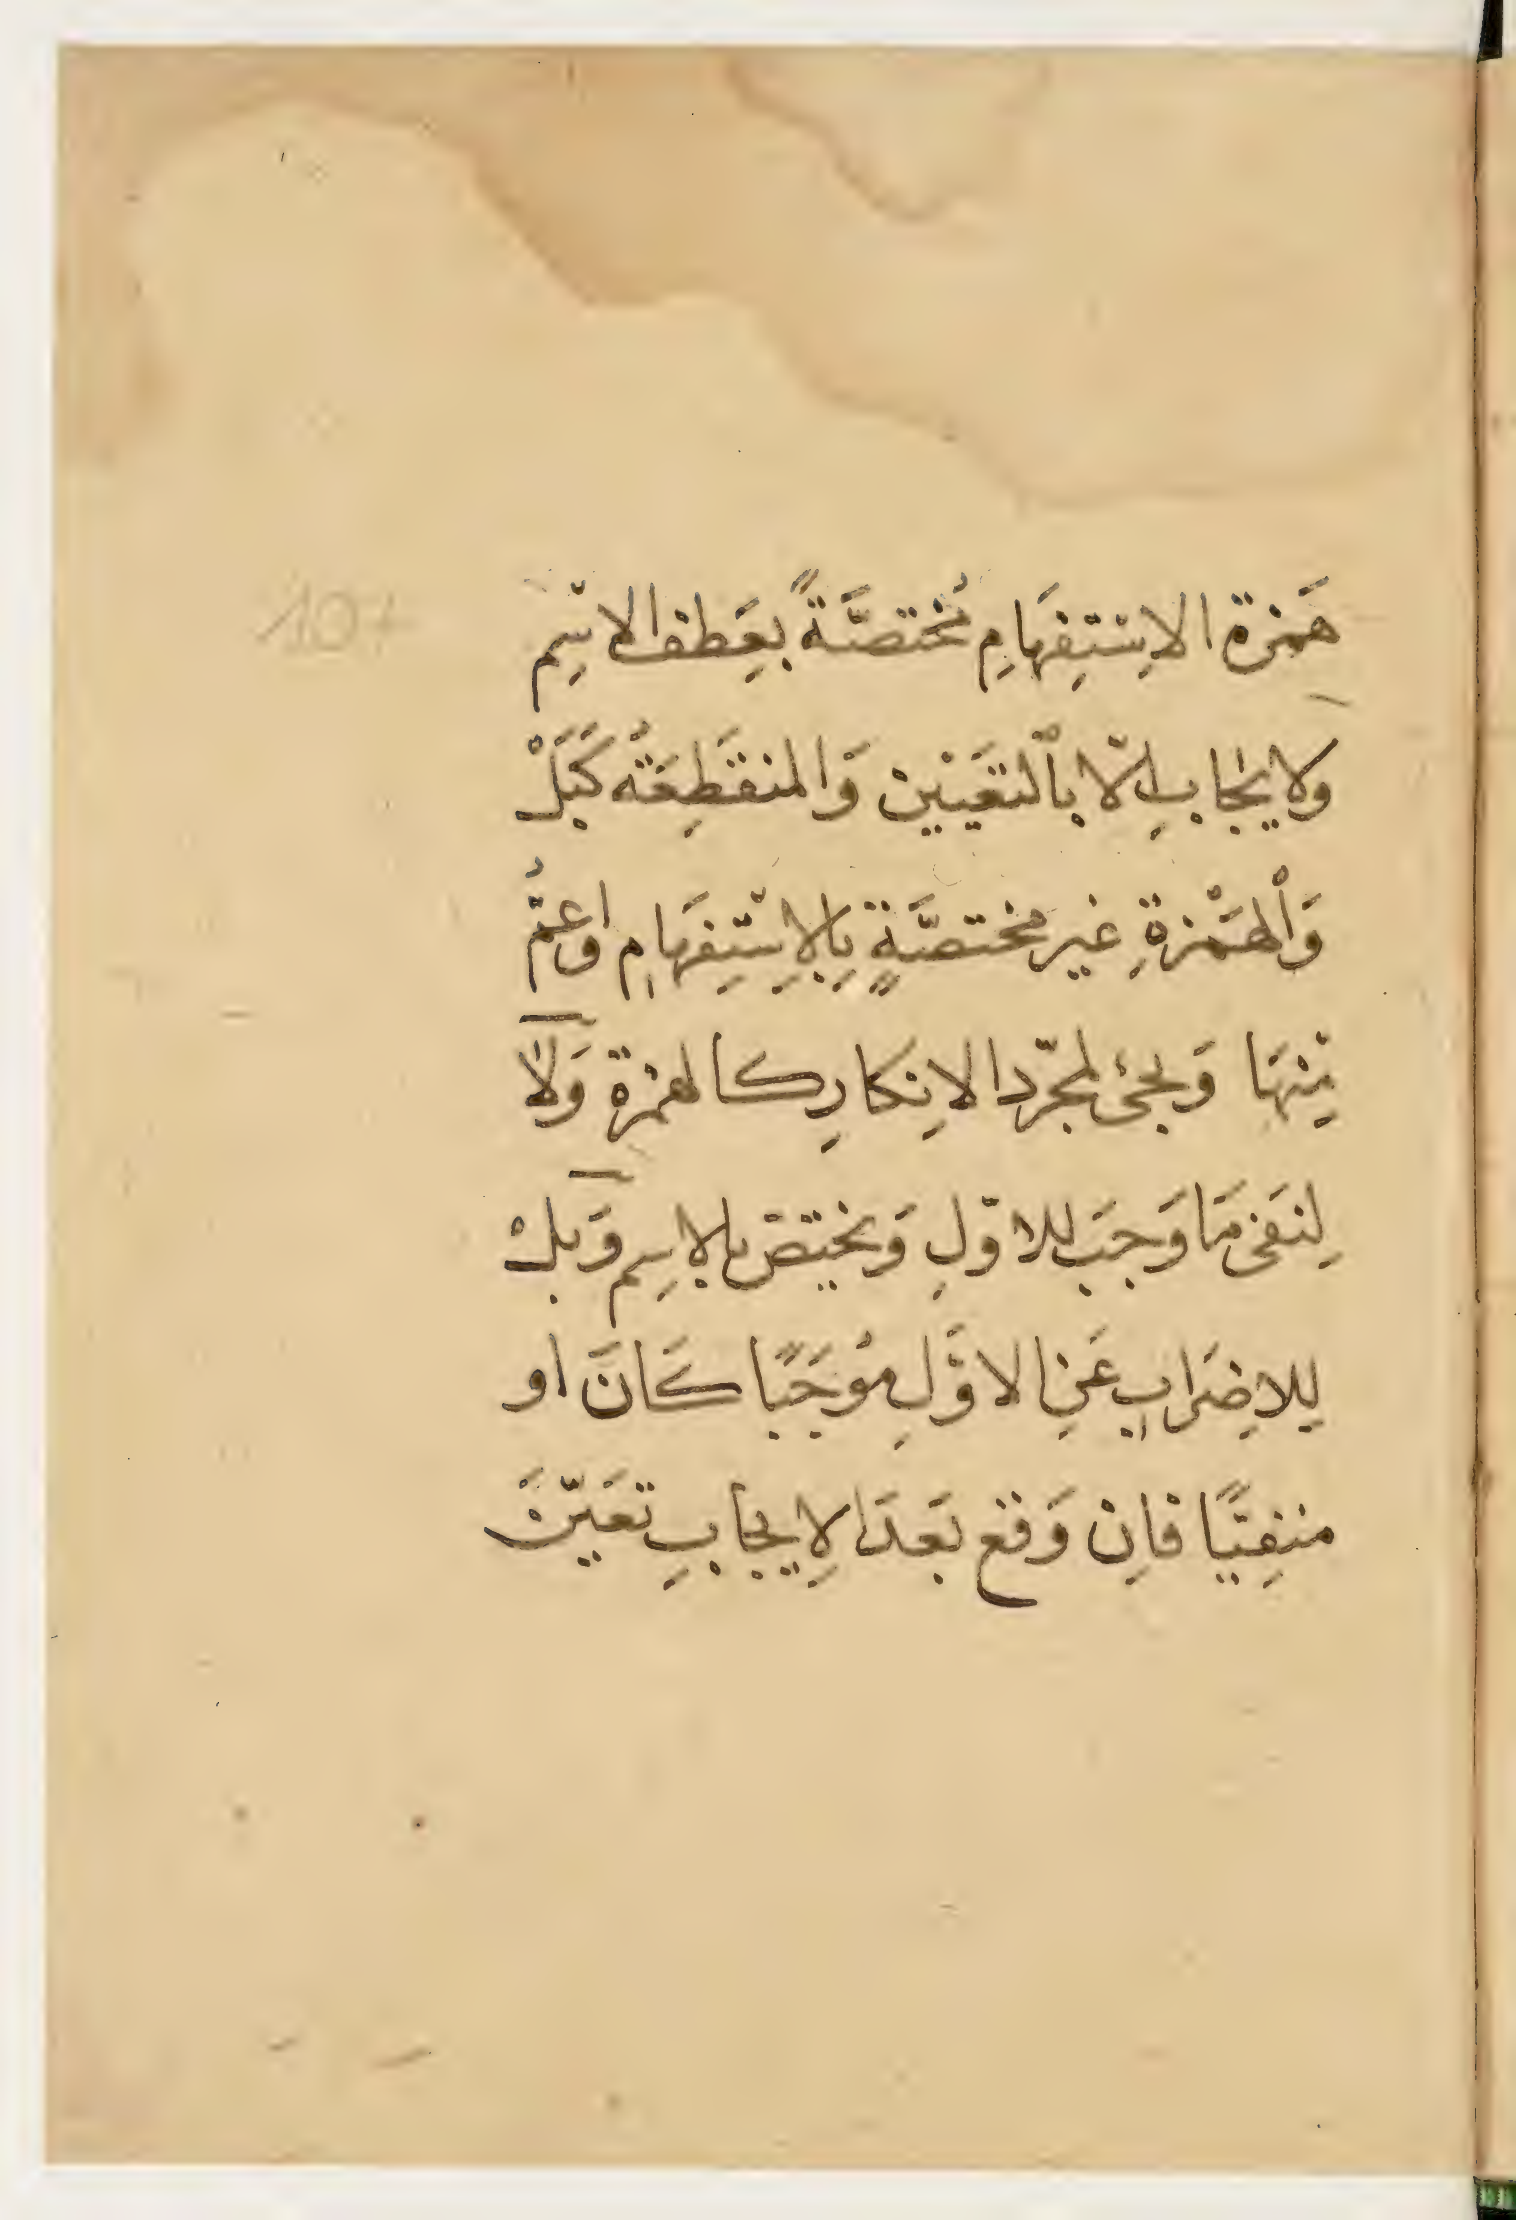 هَمزة الاِستِفِهَامِ مُختصَّةً بعَطِف الاسِّم
ولا يجُاب اِلّا بألتعَيين وَالمنقَطِعَةُ كَبَلْ
وَألهَمْزةِ غير مختصَّةٍ بِالاِستِّفِهَامِ اوعمُّ
مِنهَا وَيجئ لمجرّد الاِنكارِ كالهمزة وَلَا
لِنَفى مَا وَجَبَ للاوّلِ وَيختصّ بالاِسِم وَبلْ
لِلاِضَرابِ عَنِ الاوَّلِ مُوجَبًا كَانَ او
منفِيًّا فاِنْ وَقع بَعدَ الاِيجابِ تعَيّنَ
107